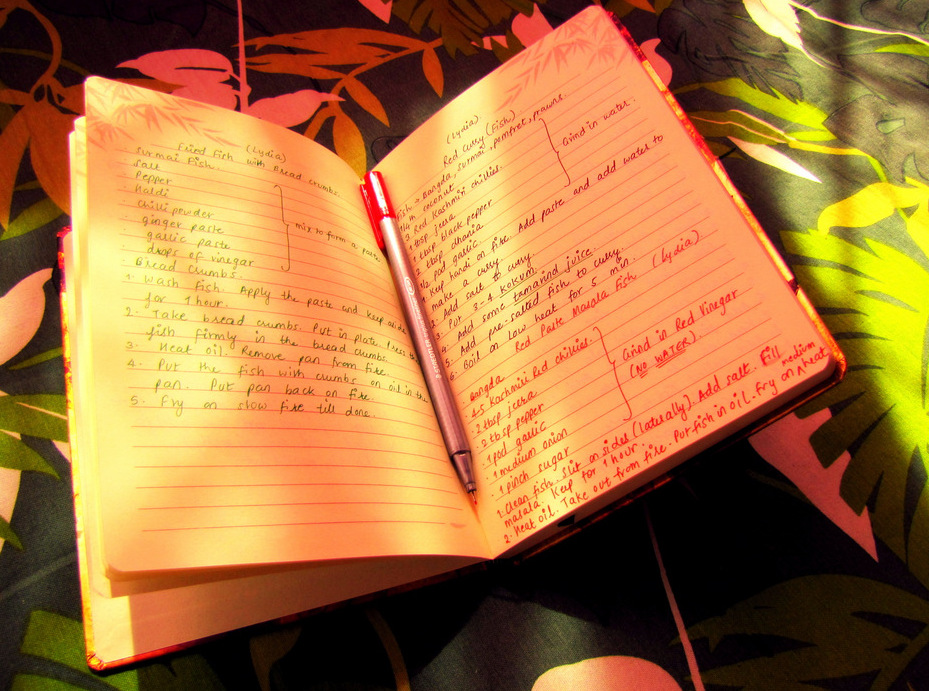 (Lydia)
Fried Fish with Bread crumbs.
Surmai Fish.
Salt
Pepper
Haldi
Chilli powder
ginger paste
garlic paste
drops of vinegar
mix to form a paste
Bread crumbs.
1. Wash fish. Apply the paste and keep aside
for 1 hour.
2. Take bread crumbs. Put in plate. Press the
fish firmly in the bread crumbs.
3. Heat oil. Remove pan from fire.
4. Put the fish with crumbs on oil in the
pan. Put pan back on fire.
5. Fry on slow fire till done.
(Lydia).
Red Curry (Fish)
Fish → Bangda, Surmai, pomfret, prawns.
coconut
Red Kashmiri chillies.
tbsp jeera
1 tbsp black pepper
2 tbsp dhania
1/2 pod garlic
grind in water.
1. Keep handi on fire. Add paste and add water to
make a curry.
2. Add salt to curry.
3. Put 3-4 kokum.
4. Add some tamarind juice.
5. Add pre-salted fish to curry.
6. Boil on low heat for 5 min.
Red Paste Masala Fish (Lydia)
Bangda
4-5 Kashmiri Red chillies.
2 tbsp jeera
2 tbsp pepper
1 pod garlic
1 medium onion
1 pinch sugar
grind in Red Vinegar
(NO WATER)
1. Clean fish. Slit on sides (laturally). Add salt. Fill
masala. Keep for 1 hour.
2. Heat oil. Take out from fire. Put fish in oil. Fry on medium
heat.